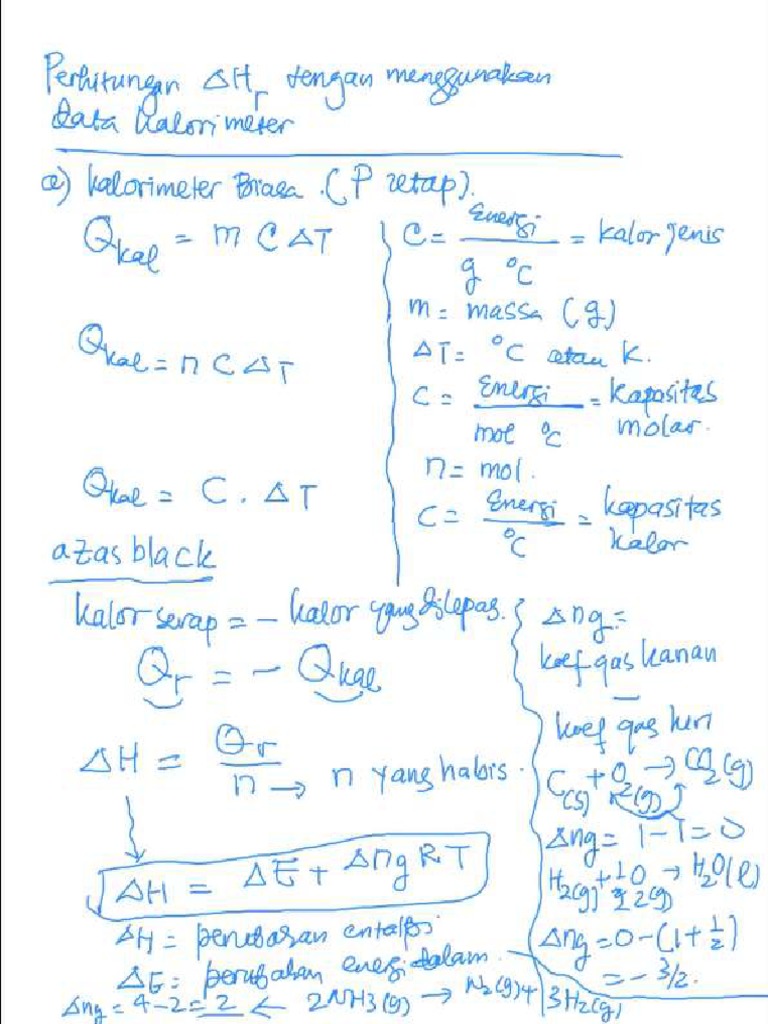 Perhitungan ΔHr dengan menggunakan
data kalorimeter
a) kalorimeter Biasa. (P tetap).
Qkal = m C ΔT
C = Energi / g °C = kalor jenis
m = massa (g)
ΔT = °C atau K.
Qkal = n C ΔT
C = Energi / mol °C = kapasitas molar.
n = mol.
Qkal = C . ΔT
C = Energi / °C = kapasitas kalor
azas black
kalor serap = - kalor yang dilepas.
Qr = - Qkal
ΔH = Qr / n → n yang habis.
ΔH = ΔE + Δng RT
ΔH = perubahan entalpi
ΔE = perubahan energi dalam
Δng = 4-2 = 2 ← 2NH3(g) → N2(g) + 3H2(g)
Δng =
koef gas kanan
-
koef gas kiri
C(s) + O2(g) → CO2(g)
Δng = 1 - 1 = 0
H2(g) + ½O2(g) → H2O(l)
Δng = 0 - (1 + ½)
= - 3/2.